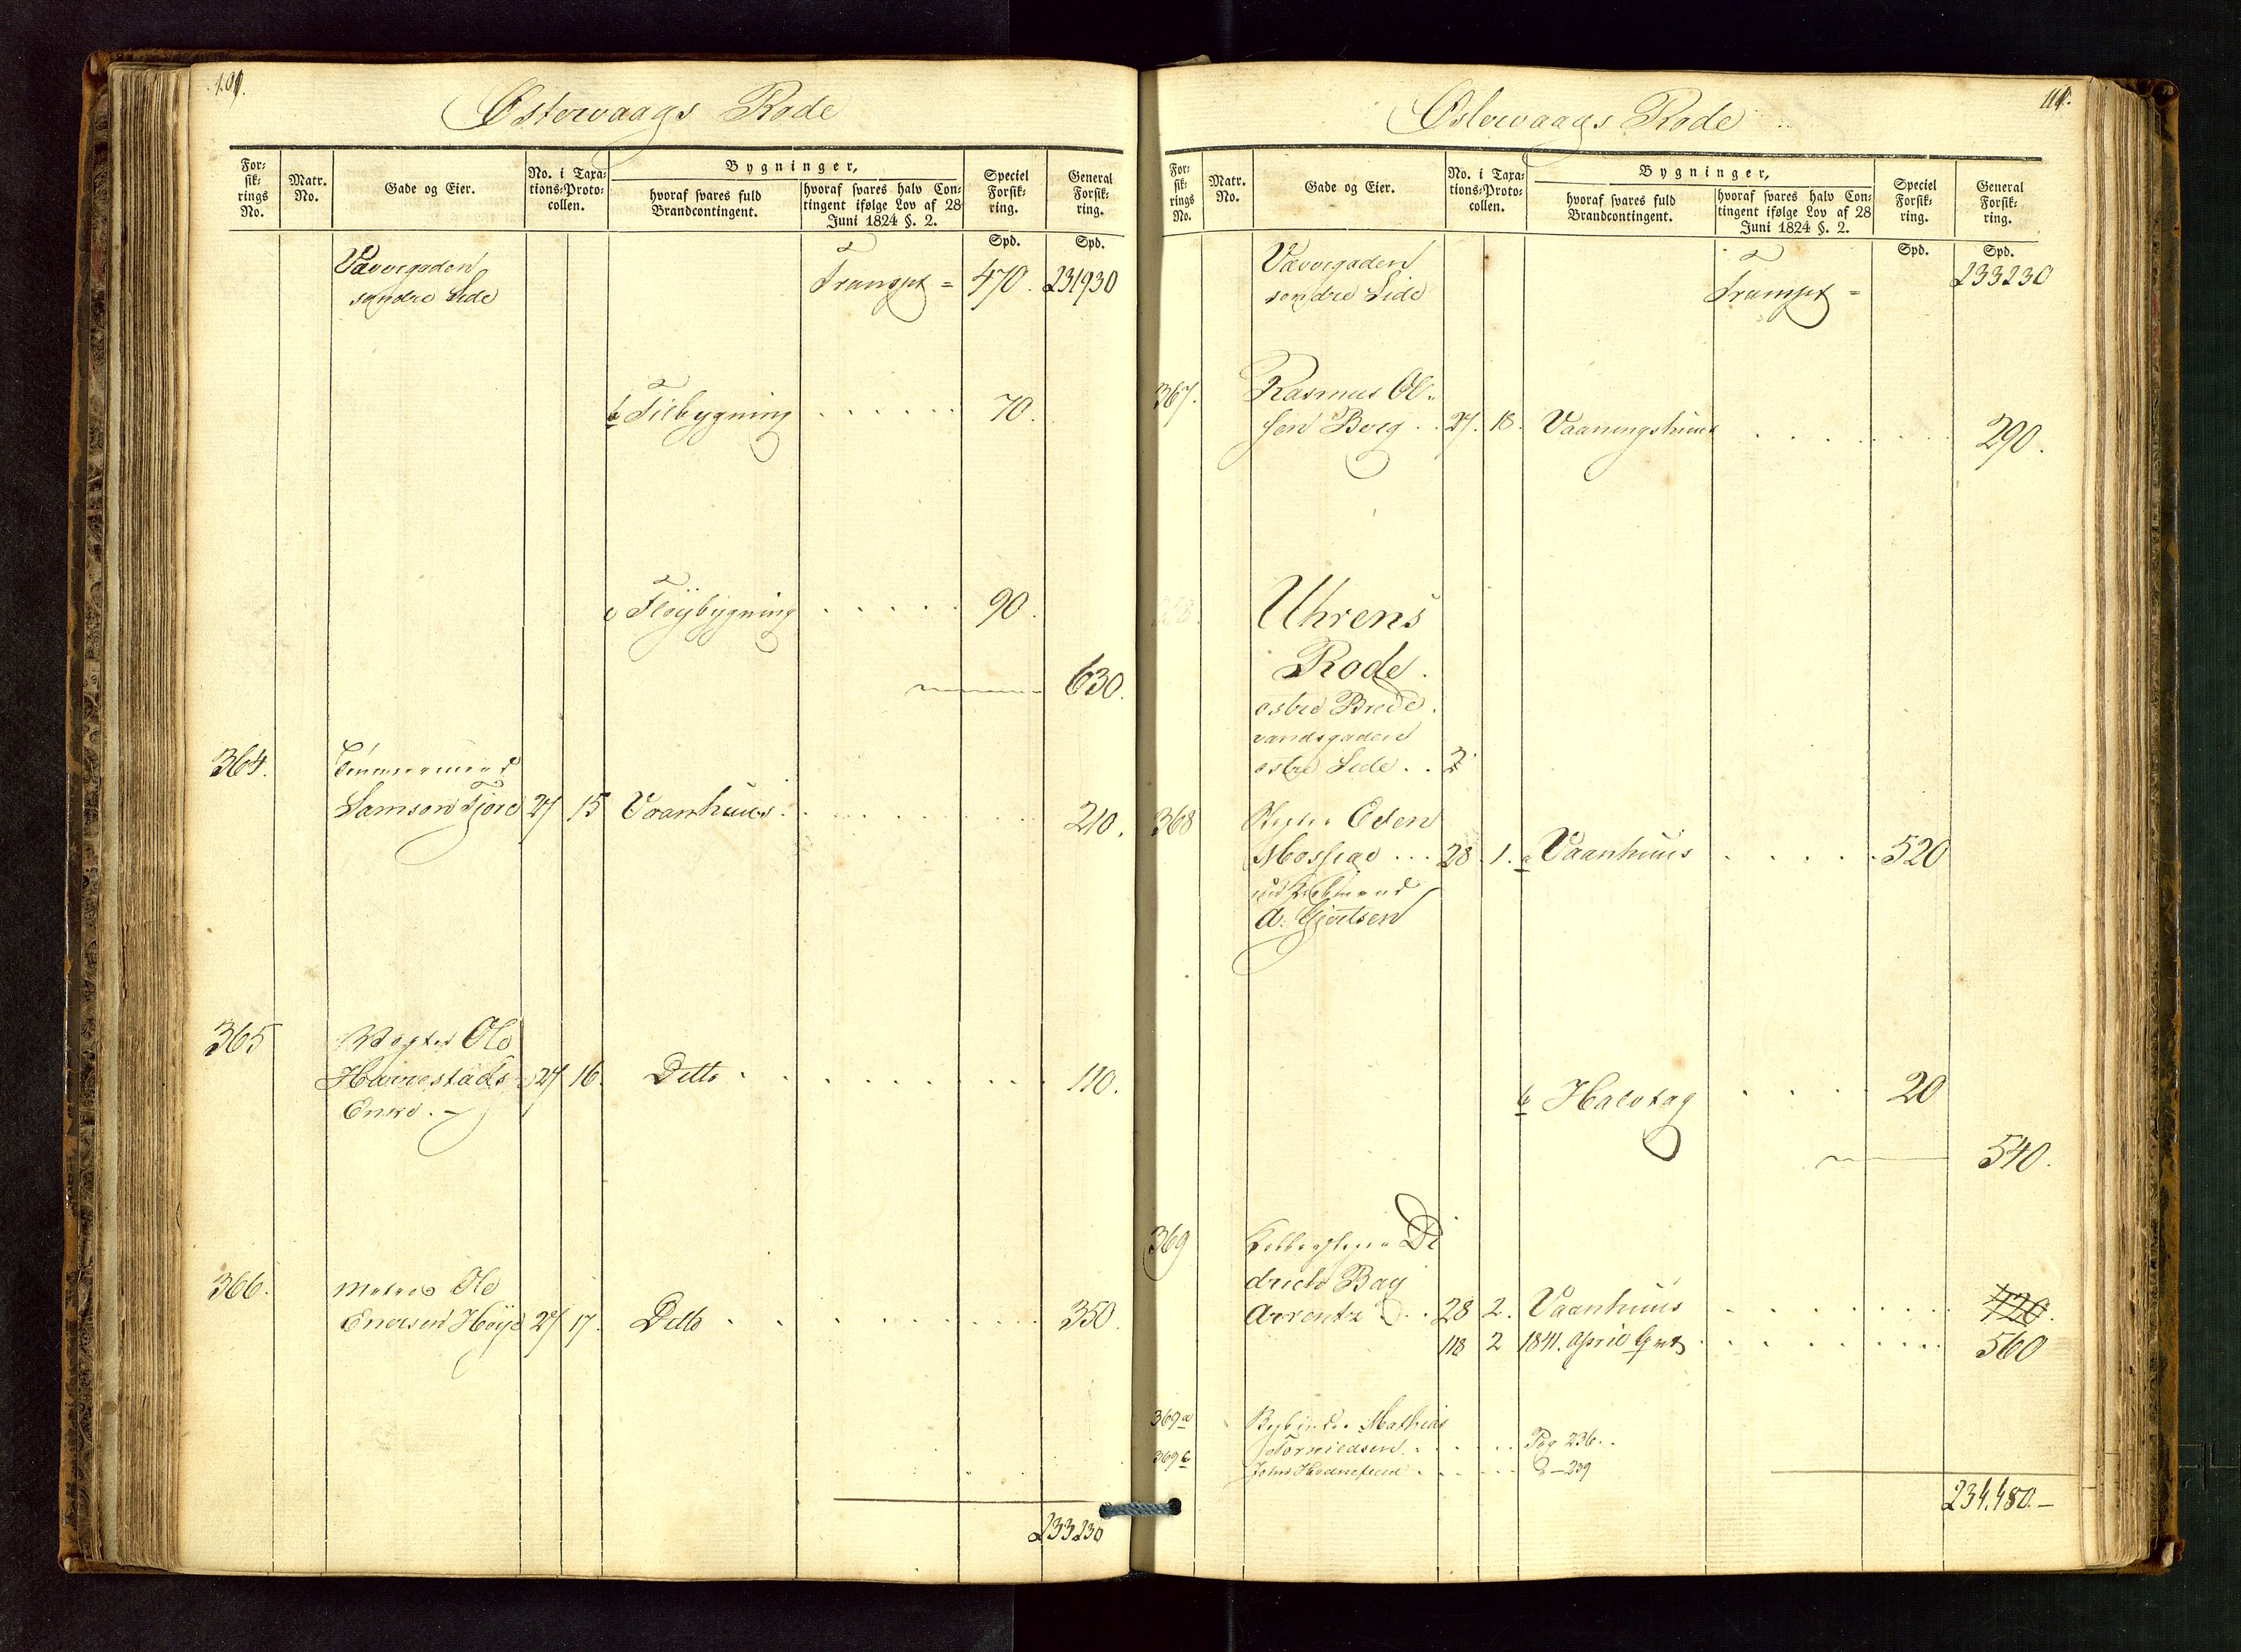 109.
Østervaags Rode
For-
sik-
rings
No.
Matr.
No.
Gade og Eier.
No. i Taxa-
tions-Proto-
collen.
Bygninger,
hvoraf svares fuld
Brandcontingent.
hvoraf svares halv Con-
tingent ifølge Lov af 28
Juni 1824 §. 2.
Speciel
Forsik-
ring.
General
Forsik-
ring.
Spd. Spd.
Vævergaden
søndre Side Transpt = 470. 231930
b Tilbygning 70.
c Fløybygning 90.
630.
364.
Samson Fjord 27 15 Vaanhuus 210.
365 Vægter Ole
Harrestads 27 16. Ditto 110.
Enke.
366. Matros Ole
Enersen Høye 27 17. Ditto 350.
233230
111.
Østervaags Rode
For-
sik-
rings
No.
Matr.
No.
Gade og Eier.
No. i Taxa-
tions-Proto-
collen.
Bygninger,
hvoraf svares fuld
Brandcontingent.
hvoraf svares halv Con-
tingent ifølge Lov af 28
Juni 1824 §. 2.
Speciel
Forsik-
ring.
General
Forsik-
ring.
Spd. Spd.
Vævergaden
søndre Side Transpt = 233230
367. Rasmus Ol-
sen Berg 27. 18. Vaaningshuus 290.
Uhrens
Rode.
østre Brede
vandsgaden
østre Side
368 Eden
28 1. a Vaanhuus 520
A. Gjertsen
b Halvtag 20
540.
369 Di
drich Bay
Arrentz 28 2. Vaanhuus 420.
118 2 1841. April 560
369a Mathias
Tormodsen Pag 236.
369b John Hodnefield D - 239
234.480.-